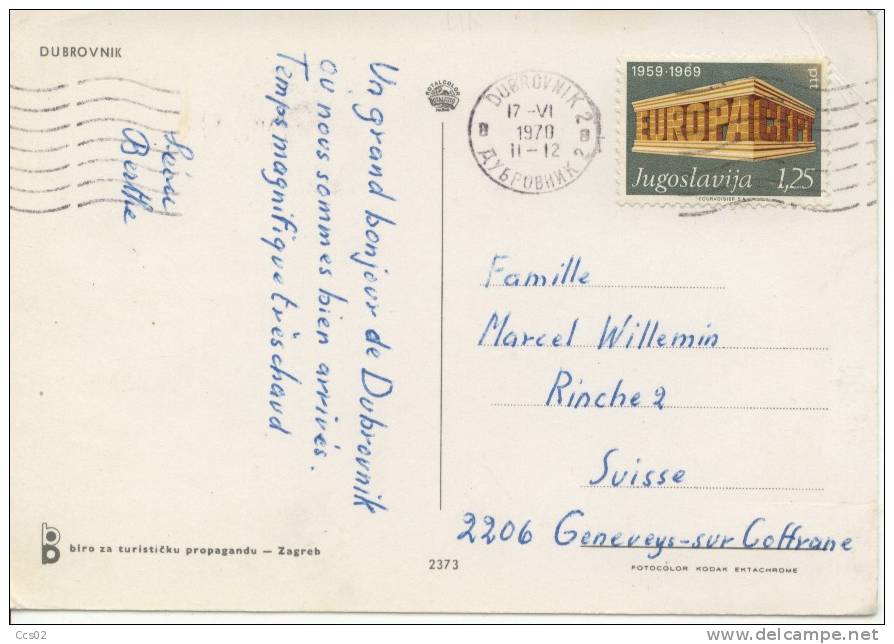 DUBROVNIK
Un grand bonjour de Dubrovnik
ou nous sommes bien arrivés.
Temps magnifique très chaud
Berthe
biro za turističku propagandu — Zagreb
2373
ROTALCOLOR
DUBROVNIK 2
17-VI
1970
11-12
ДУБРОВНИК 2
1959·1969
ptt
EUROPA CEPT
Jugoslavija 1,25
COURVOISIER S.A.
Famille
Marcel Willemin
Rinche 2
Suisse
2206 Geneveys-sur Coffrane
FOTOCOLOR KODAK EKTACHROME
Ccs02
delcampe.net